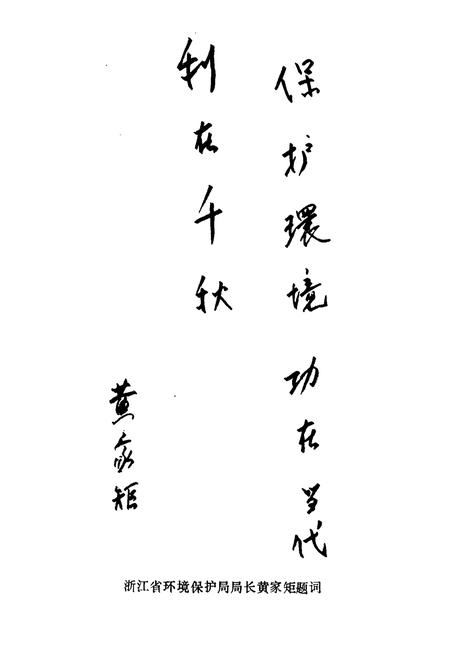 保护環境功在当代
利在千秋
黄家矩
浙江省环境保护局局长黄家矩题词